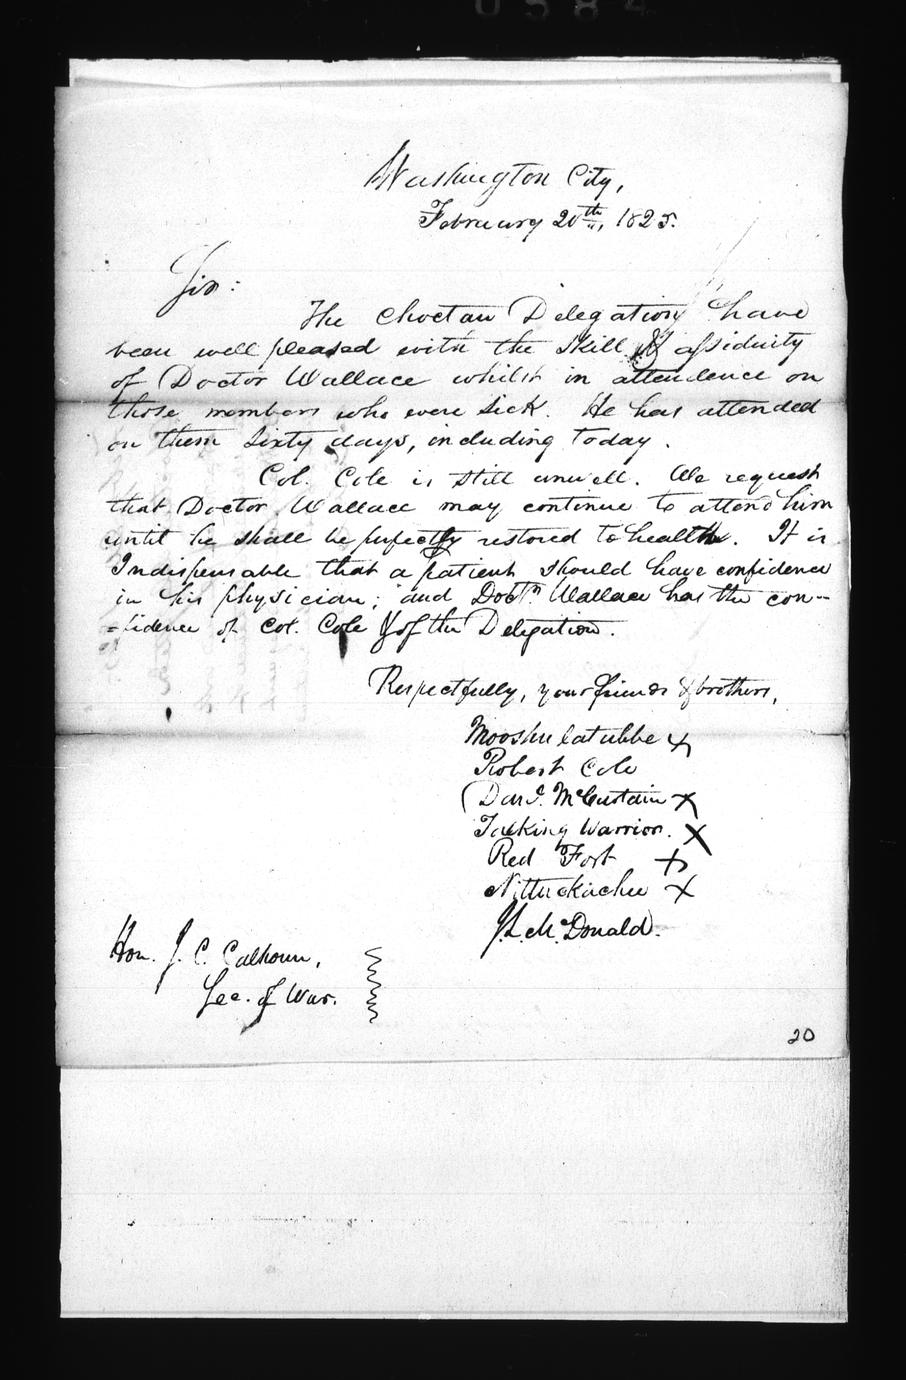 0584
Washington City,
February 20th, 1825.
Sir:
The Choctaw Delegation have
been well pleased with the skill & assiduity
of Doctor Wallace whilst in attendence on
those members who were sick. He has attended
on them sixty days, including today.
Col. Cole is still unwell. We request
that Doctor Wallace may continue to attend him
until he shall be perfectly restored to health. It is
Indispensable that a patient should have confidence
in his physician; and Doctr. Wallace has the con-
=fidence of Col. Cole & of the Delegation.
Respectfully, your friends & brothers,
Mooshulatubbe x
Robert Cole
Danl. McCurtain x
Talking Warrior. x
Red Fort x
Nittuckachee x
J. L. McDonald.
Hon. J. C. Calhoun,
Sec. of War.
20